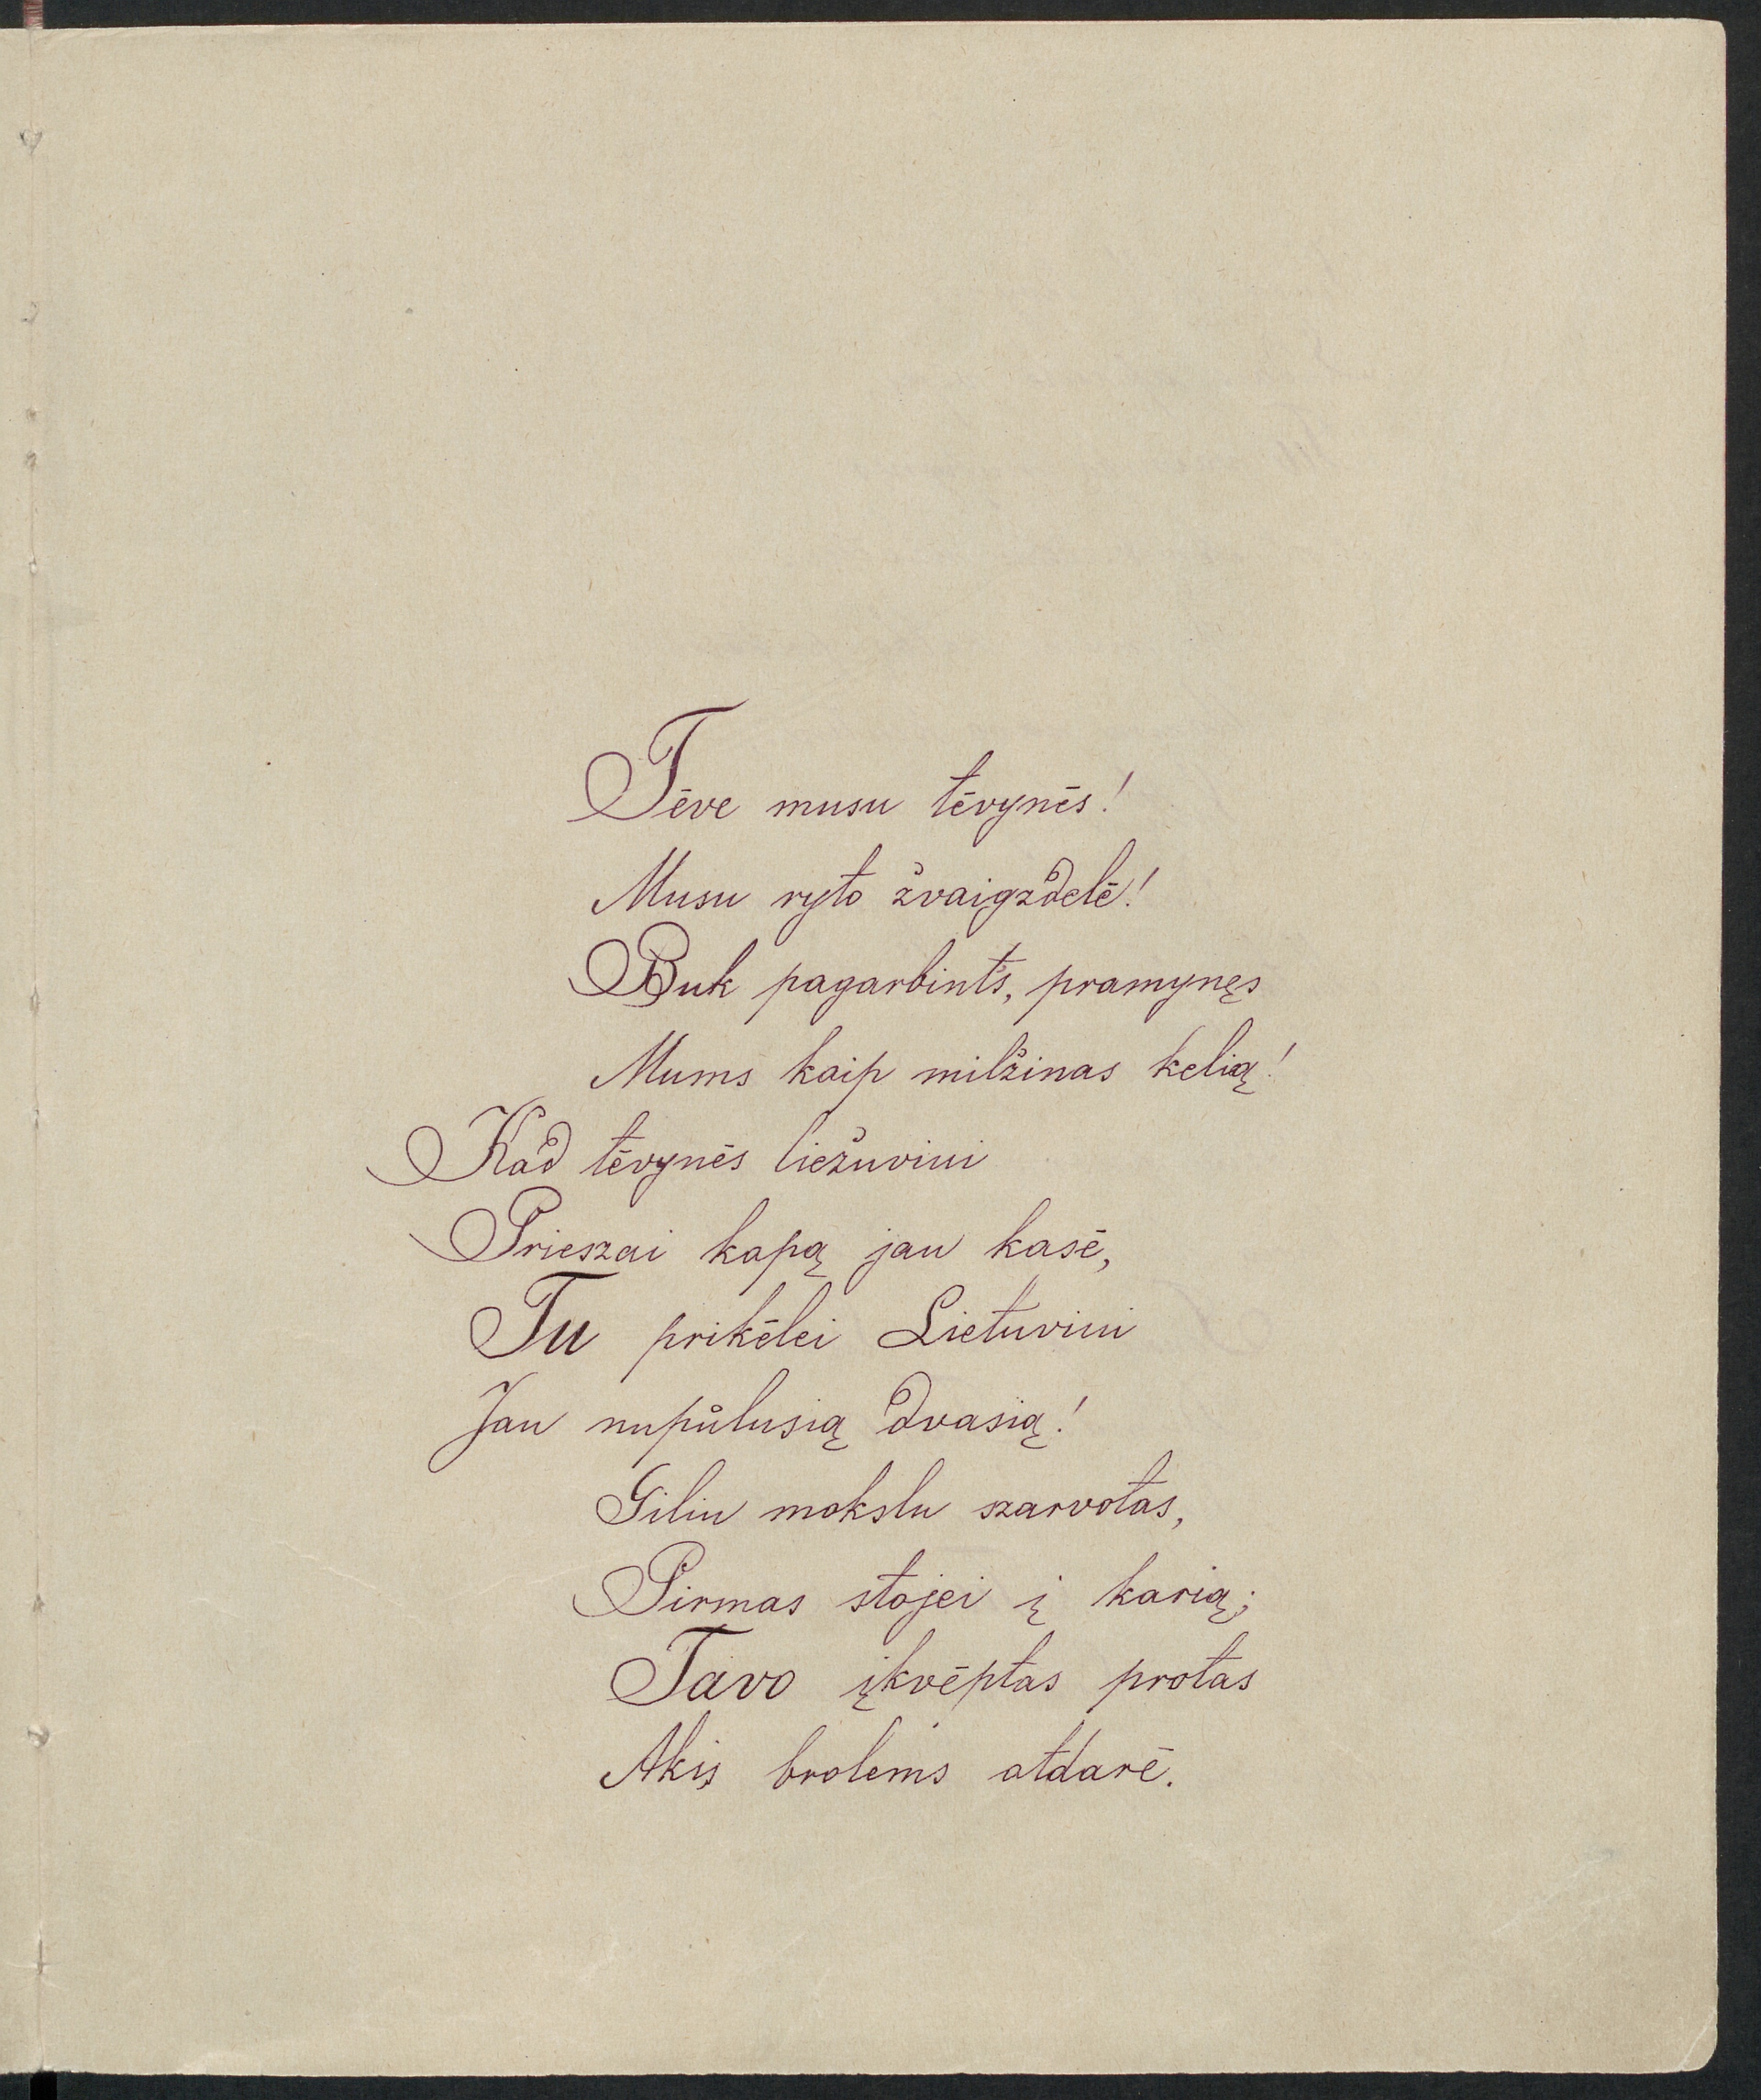 Tėve musu tėvynės!
Musu ryto žvaigždelė!
Buk pagarbint's, pramynęs
Mums kaip milžinas kelią!
Kad tėvynės liežuviui
Prieszai kapą jau kasė,
Tu prikėlei Lietuviui
Jau nupůlusią dvasią!
Giliu mokslu szarvotas,
Pirmas stojei į karią;
Tavo įkvėptas protas
Akis brolems atdarė.